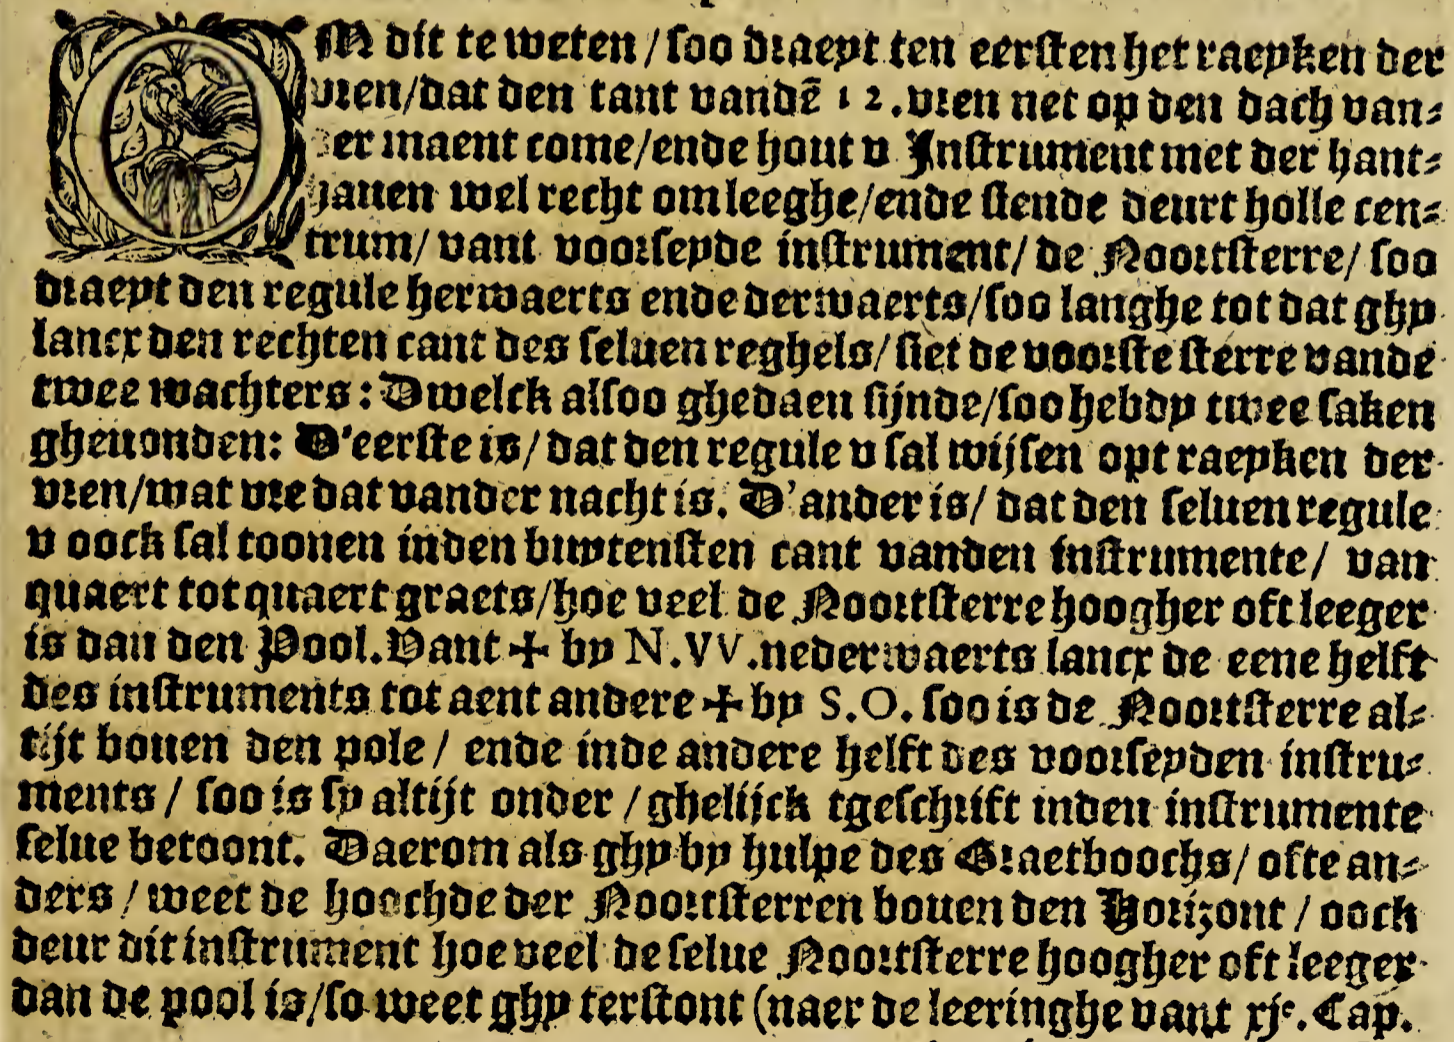 OM dit te weten / soo draeyt ten eersten het raeyken der
vren/dat den tant vandē 12.vren net op den dach van-
der maent come/ende hout v Instrument met der hant-
hauen wel recht om leeghe/ende siende deurt holle cen-
trum/ vant voorseyde instrument/ de Noortsterre/ soo
draeyt den regule herwaerts ende derwaerts/soo langhe tot dat ghy
lancx den rechten cant des seluen reghels/ siet de voorste sterre vande
twee wachters: Dwelck alsoo ghedaen sijnde/soo hebdy twee saken
gheuonden: D'eerste is/ dat den regule v sal wijsen opt raeyken der
vren/wat vre dat vander nacht is. D'ander is/ dat den seluen regule
v oock sal toonen inden buytensten cant vanden instrumente/ van
quaert tot quaert graets/hoe veel de Noortsterre hoogher oft leeger
is dan den Pool. Vant + by N.VV. nederwaerts lancx de eene helft
des instruments tot aent andere + by S.O. soo is de Noortsterre al-
tijt bouen den pole / ende inde andere helft des voorseyden instru-
ments / soo is sy altijt onder / ghelijck tgeschrift inden instrumente
selue betoont. Daerom als ghy by hulpe des Graetboochs/ ofte an-
ders / weet de hoochde der Noortsterren bouen den Horizont / oock
deur dit instrument hoe veel de selue Noortsterre hoogher oft leeger
dan de pool is/so weet ghy terstont (naer de leeringhe vant xjᵉ. Cap.